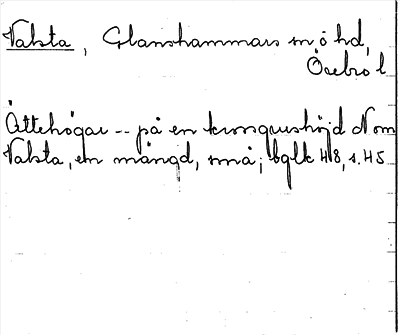 Valsta, Glanshammars sn, ö hd,
Örebro l
Ättehögar -- på en krosgrushöjd N om
Valsta, en mängd, små; bglk 48, s. 45